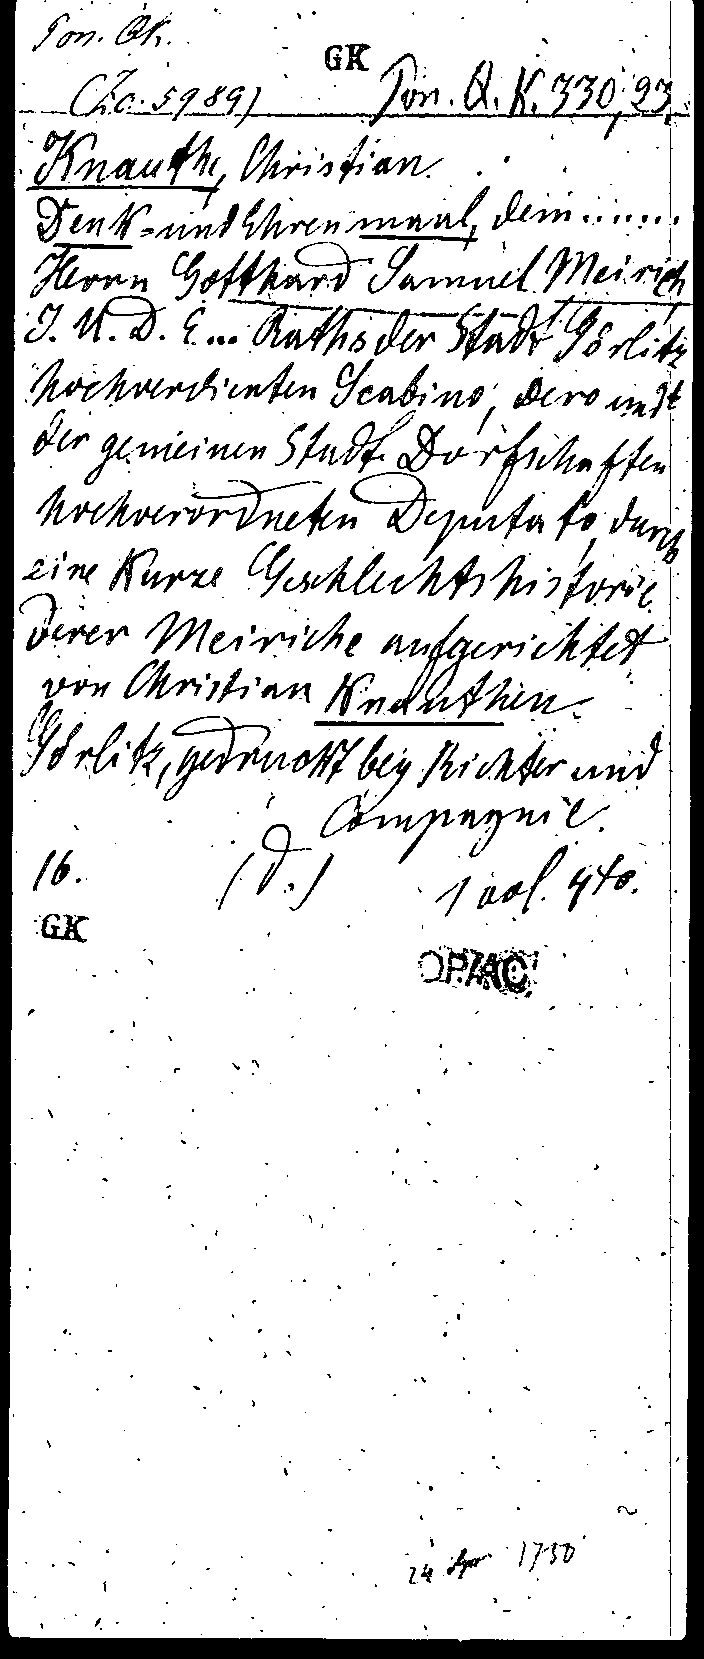 Pon. Qk.
GK
(Zc. 5989) Pon. Q. K. 330, 23.
Knauthe, Christian.
Denk- und Ehrenmaal, dem.......
Herrn Gotthard Samuel Meirich
J. U. D. E... Raths der Stadt Görlitz
hochverdienten Scabino, dero undt
der gemeinen Stadt Dorfschaften
hochverordneten Deputato, durch
eine Kurze Geschlechtshistorie
derer Meiriche aufgerichtet
von Christian Knauthen.
Görlitz, gedruckt bey Richter und
Compagnie.
16. (d.) 1 vol. 4to.
GK
OPAC
24 1750